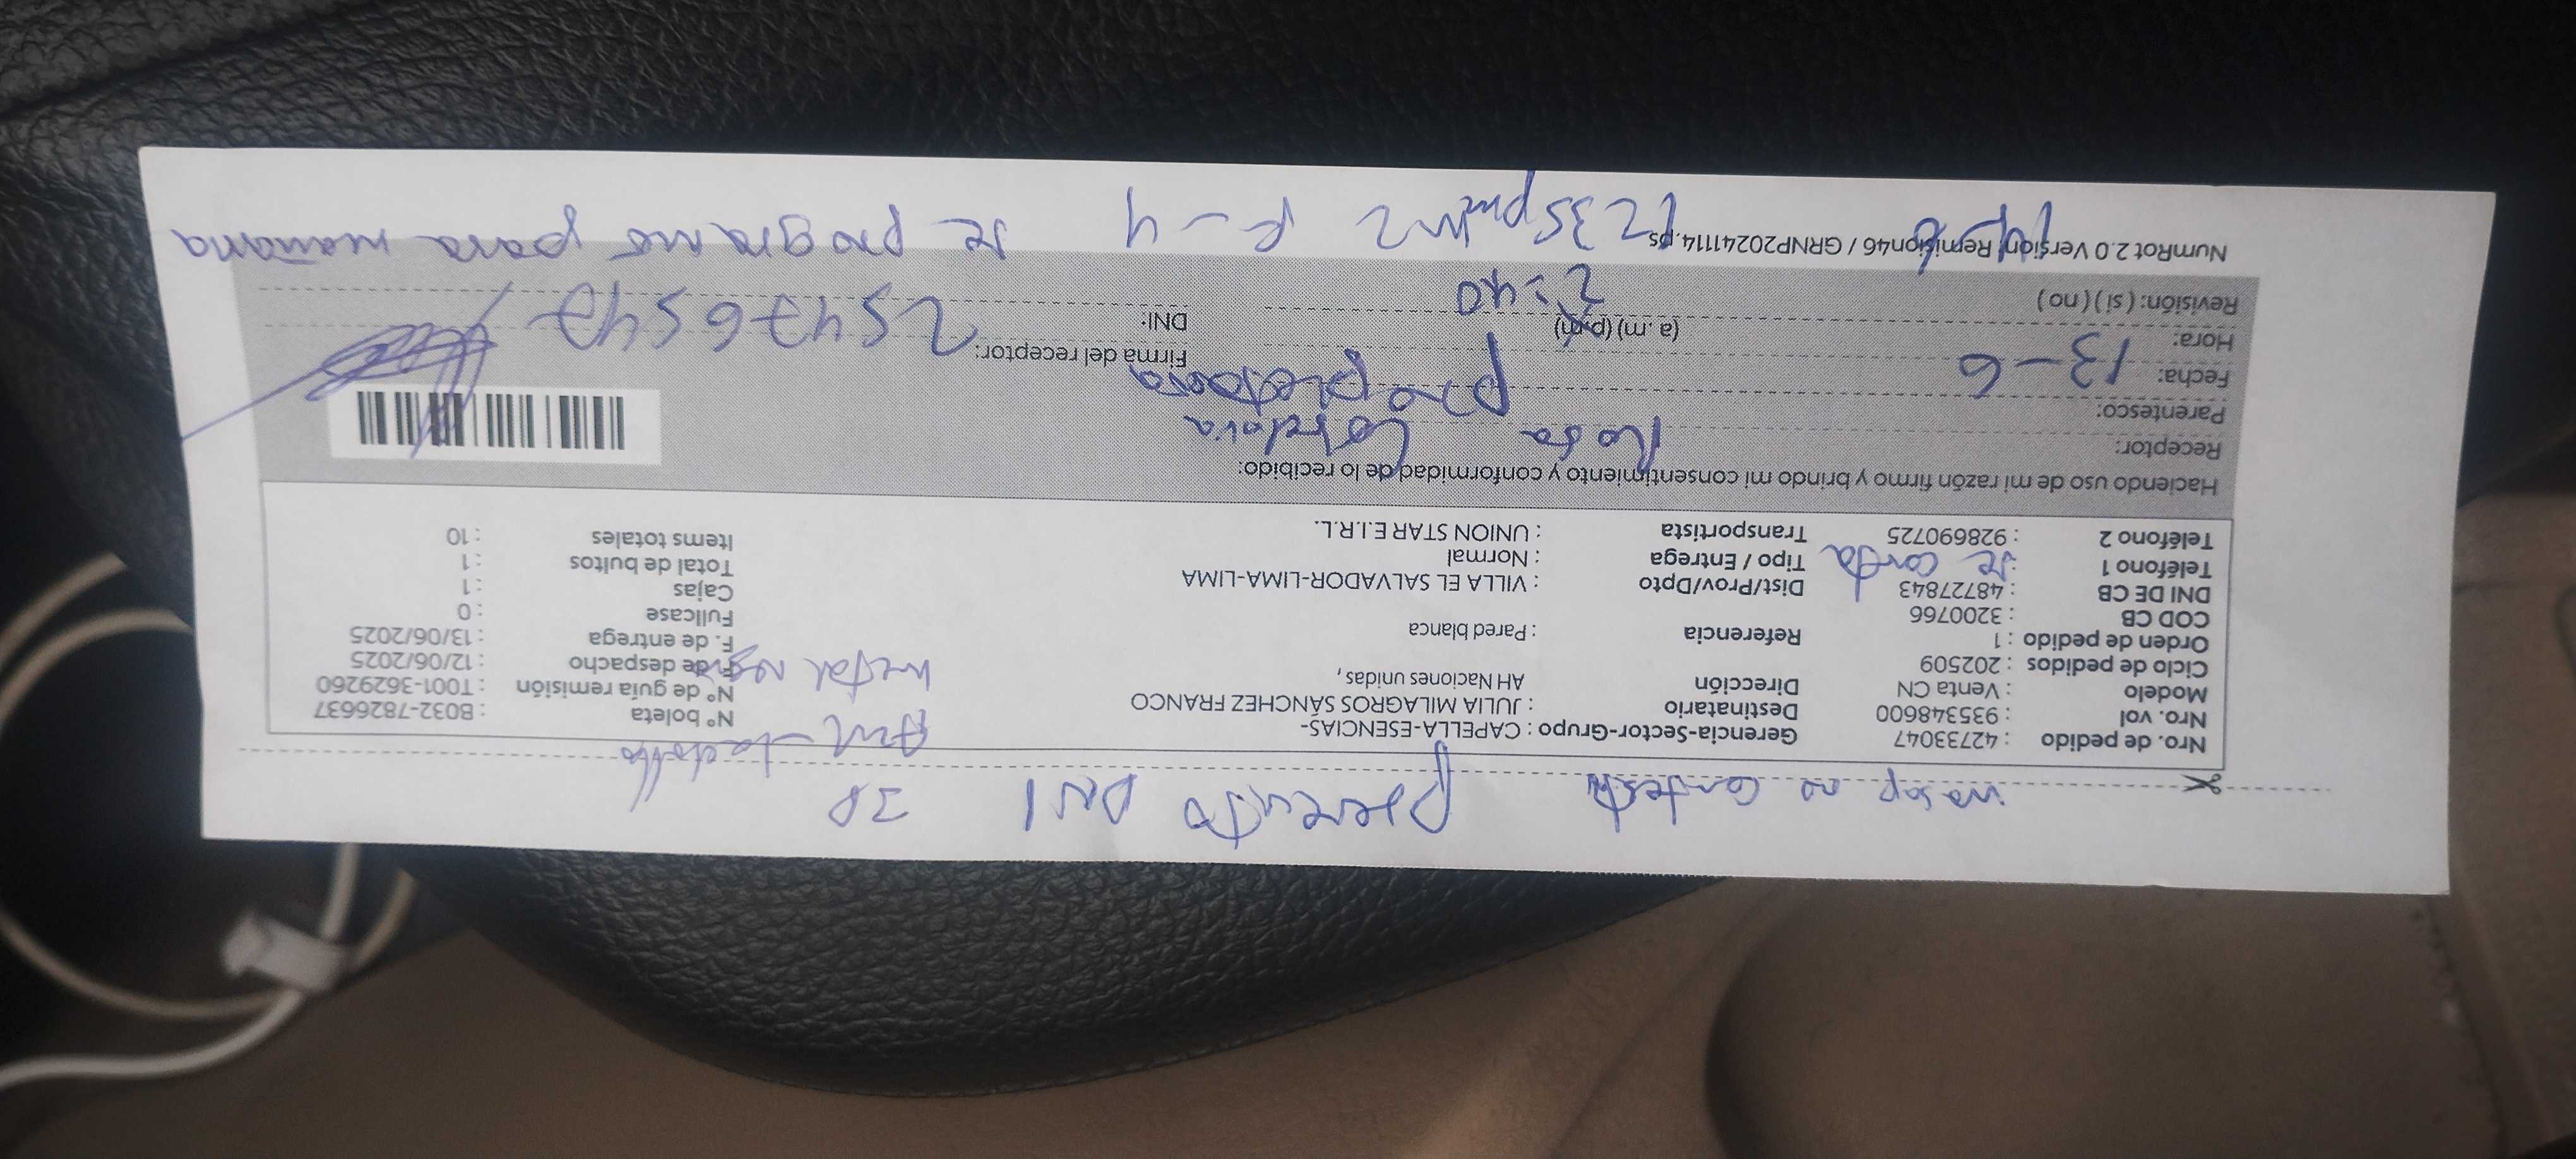 wasap no contesta presento DNI 3P
Nro. de pedido : 42733047 Gerencia-Sector-Grupo : CAPELLA-ESENCIAS- N° boleta : B032-7826637
Nro. vol : 935348600 Destinatario : JULIA MILAGROS SÁNCHEZ FRANCO N° de guía remisión : T001-3629260
Modelo : Venta CN Dirección AH Naciones unidas, F. de despacho : 12/06/2025
metal negra
Ciclo de pedidos : 202509 F. de entrega : 13/06/2025
Orden de pedido : 1 Referencia : Pared blanca Fullcase : 0
COD CB : 3200766 Cajas : 1
DNI DE CB : 48727843 Dist/Prov/Dpto : VILLA EL SALVADOR-LIMA-LIMA Total de bultos : 1
Teléfono 1 : se corta Tipo / Entrega : Normal Items totales : 10
Teléfono 2 : 928690725 Transportista : UNION STAR E.I.R.L.
Haciendo uso de mi razón firmo y brindo mi consentimiento y conformidad de lo recibido:
Receptor: Rosa
Parentesco: propietaria
Fecha: 13-6 Firma del receptor:
Hora: (a. m) (p.m) 2:40 DNI: 25476547
Revisión: ( si ) ( no )
NumRot 2.0 Versión Remision46 / GRNP20241114.ps
14-6 12 35 pm F-4 se programo para mañana